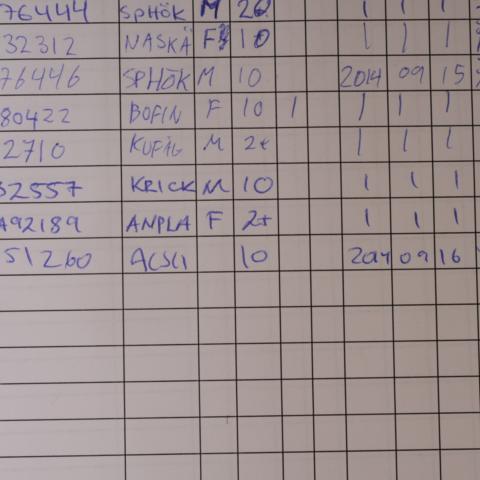 76444 SPHÖK M 2K | | |
32312 NASKÄ F 10 | | |
76446 SPHÖK M 10 2014 09 15
80422 BOFIN F 10 | | | |
2710 KUFÅG M 2+ | | |
32557 KRICK M 10 | | |
A92189 ANPLA F 2+ | | |
51260 ACSCI 10 2014 09 16